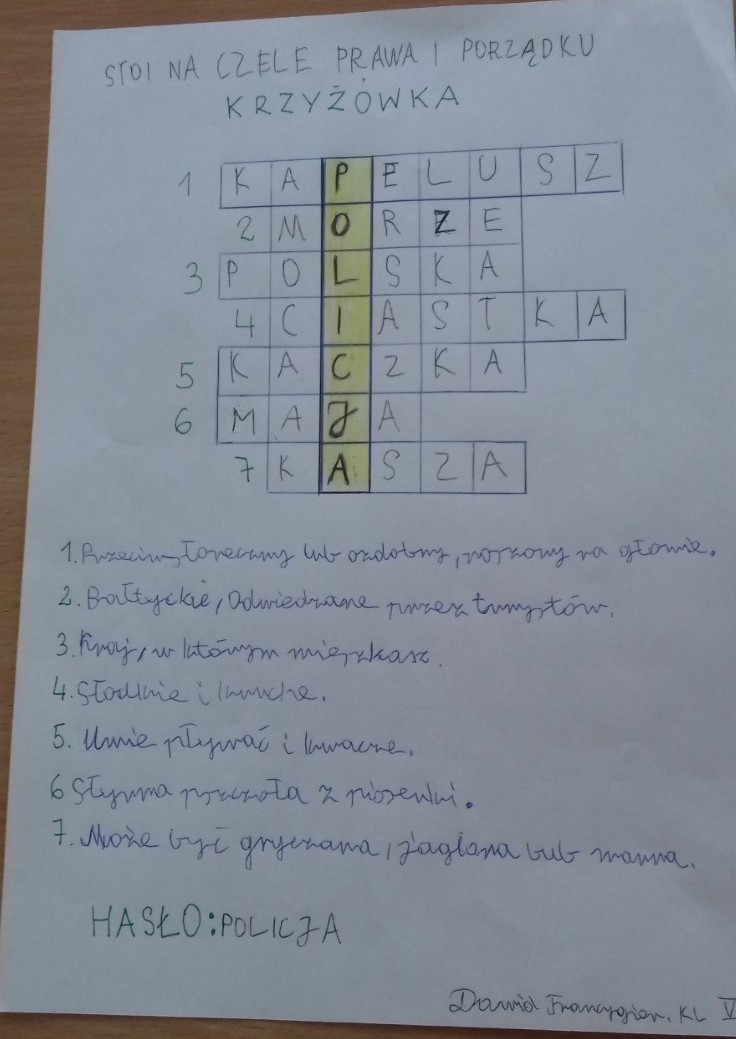 STOI NA CZELE PRAWA I PORZĄDKU
KRZYŻÓWKA
1 K A P E L U S Z
2 M O R Z E
3 P O L S K A
4 C I A S T K A
5 K A C Z K A
6 M A J A
7 K A S Z A
1. Przeciwsłoneczny lub ozdobny, noszony na głowie.
2. Bałtyckie, Odwiedzane przez turystów.
3. Kraj, w którym mieszkasz.
4. Słodkie i kruche.
5. Umie pływać i kwacze.
6 Słynna pszczoła z piosenki.
7. Może być gryczana, jaglana lub manna.
HASŁO: POLICJA
Dawid KL V